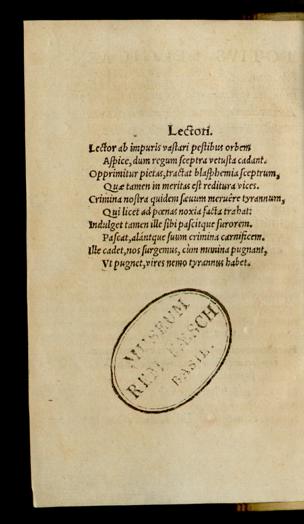 Lectori.
Lector ab impuris vastari pestibus orbem
Aspice, dum regum sceptra vetusta cadant.
Opprimitur pietas, tractat blasphemia sceptrum,
Quæ tamen in meritas est reditura vices.
Crimina nostra quidem sæuum meruêre tyrannum,
Qui licet ad pœnas noxia facta trahat:
Indulget tamen ille sibi pascitque furorem.
Pascat, alántque suum crimina carnificem.
Ille cadet, nos surgemus, cùm numina pugnant,
Vt pugnet, vires nemo tyrannus habet.
MUSEUM
REM. FÆSCH
BASIL.